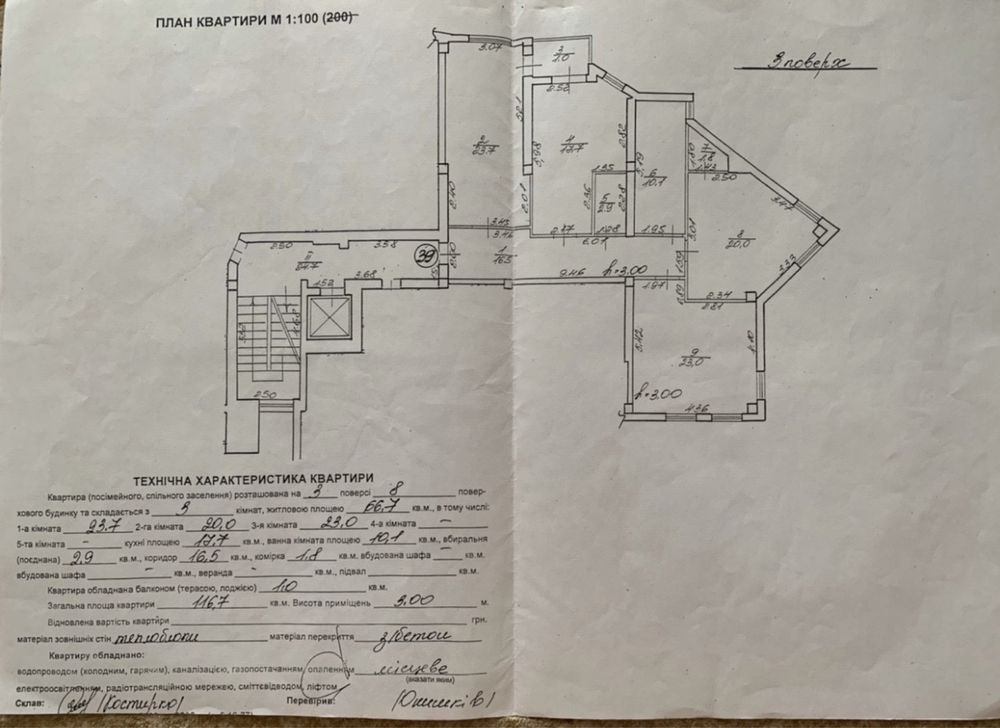 ПЛАН КВАРТИРИ М 1:100 (200)
3 поверх
3.07
3
1.0
2.50
5.21
2
23.7
5.98
4
17.7
2.82
5.19
6
10.1
1.80
7
1.8
1.43
2.50
3.47
2.40
2.01
2.36
1.35
5
2.9
2.28
3.43
3.46
2.37
1.28
6.01
1.95
3.01
8
20,0
3.33
2.50
3.58
39
1
16.5
h=3.00
1.59
II
24.7
1.52
3.68
9.46
1.97
2.89
2.34
2.81
2.50
5.42
9
23,0
4.10
h=3.00
4.36
ТЕХНІЧНА ХАРАКТЕРИСТИКА КВАРТИРИ
Квартира (посімейного, спільного заселення) розташована на 3 поверсі 8 повер-
хового будинку та складається з 3 кімнат, житловою площею 66,7 кв.м., в тому числі:
1-а кімната 23.7 2-га кімната 20,0 3-я кімната 23.0 4-а кімната –
5-та кімната - кухні площею 17,7 кв.м., ванна кімната площею 10,1 кв.м., вбиральня
(поєднана) 2,9 кв.м., коридор 16,5 кв.м., комірка 1,8 кв.м. вбудована шафа – кв.м.
вбудована шафа - кв.м., веранда - кв.м., підвал кв.м.
Квартира обладнана балконом (терасою, лоджією) 1.0 кв.м.
Загальна площа квартири 116,7 кв.м. Висота приміщень 3,00 м.
Відновлена вартість квартири грн.
матеріал зовнішніх стін теплоблоки матеріал перекриття з/бетон
Квартиру обладнано:
водопроводом (холодним, гарячим), каналізацією, газопостачанням, опаленням місцеве
(вказати яким)
електроосвітленням, радіотрансляційною мережею, сміттєвідводом, ліфтом
Склав: /Костирко/ Перевірив: